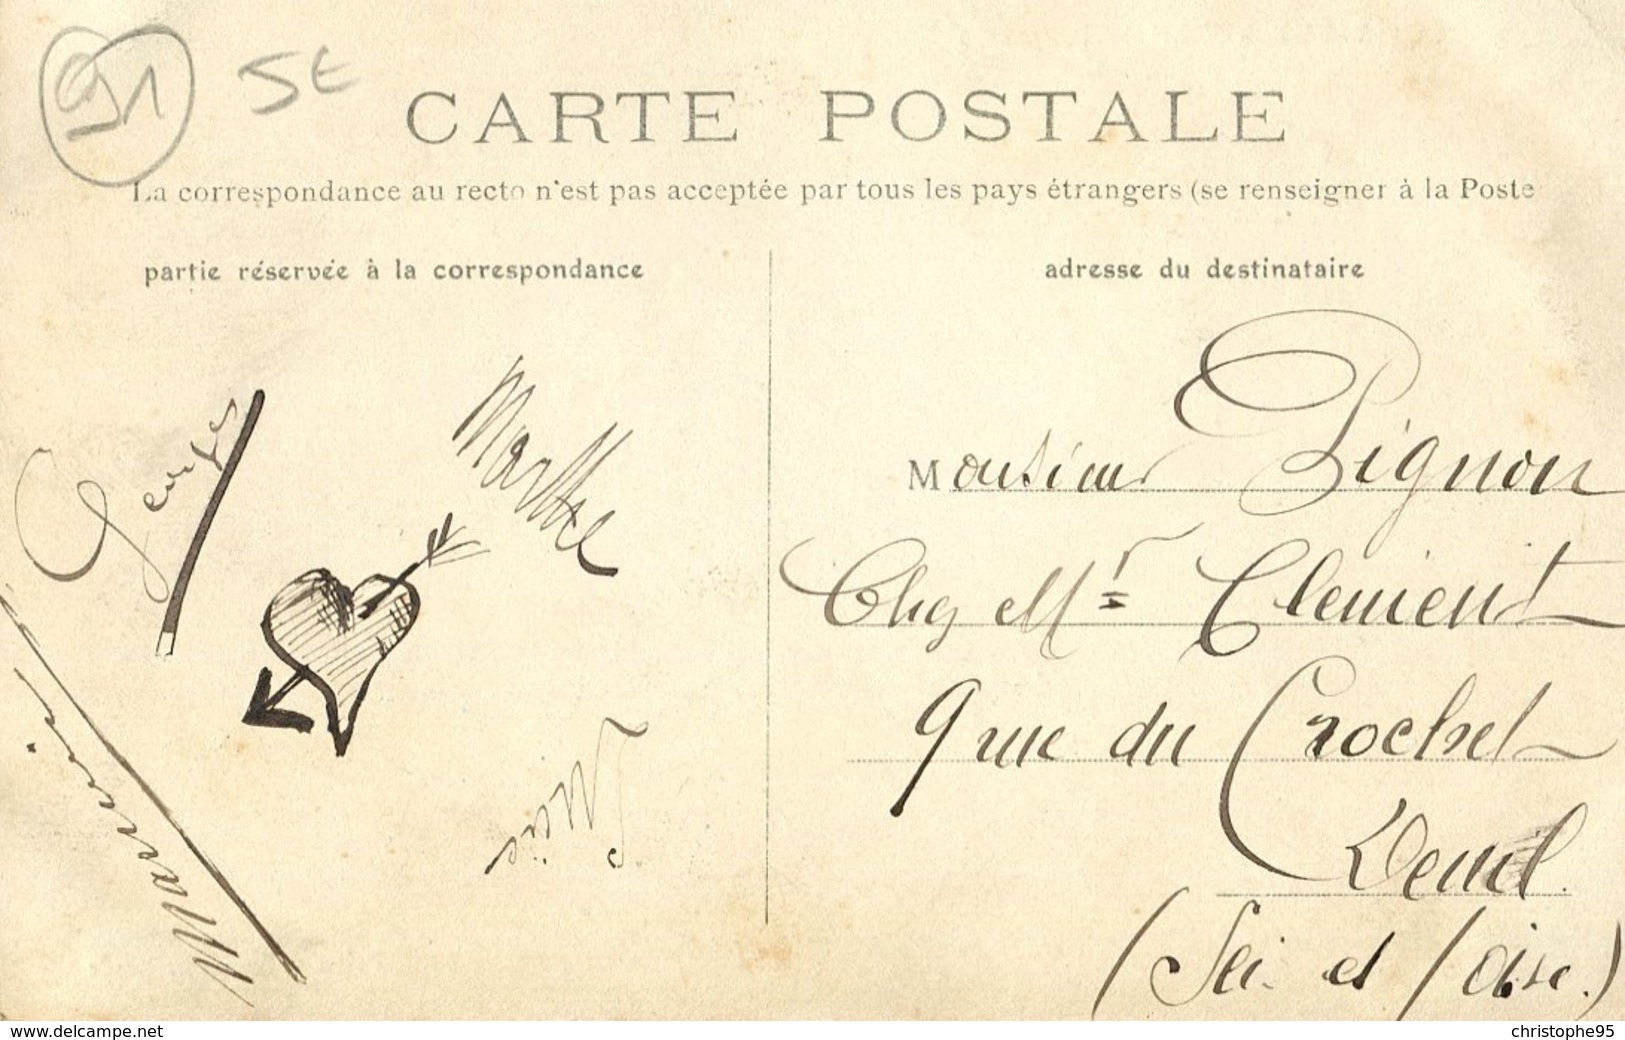 91 5E
CARTE POSTALE
La correspondance au recto n'est pas acceptée par tous les pays étrangers (se renseigner à la Poste
partie réservée à la correspondance
adresse du destinataire
Georges
Marthe
Monsieur Pignon
Chez Mr Clement
9 rue du Crochet
Deuil
(Sei. et Oise.)
www.delcampe.net
christophe95